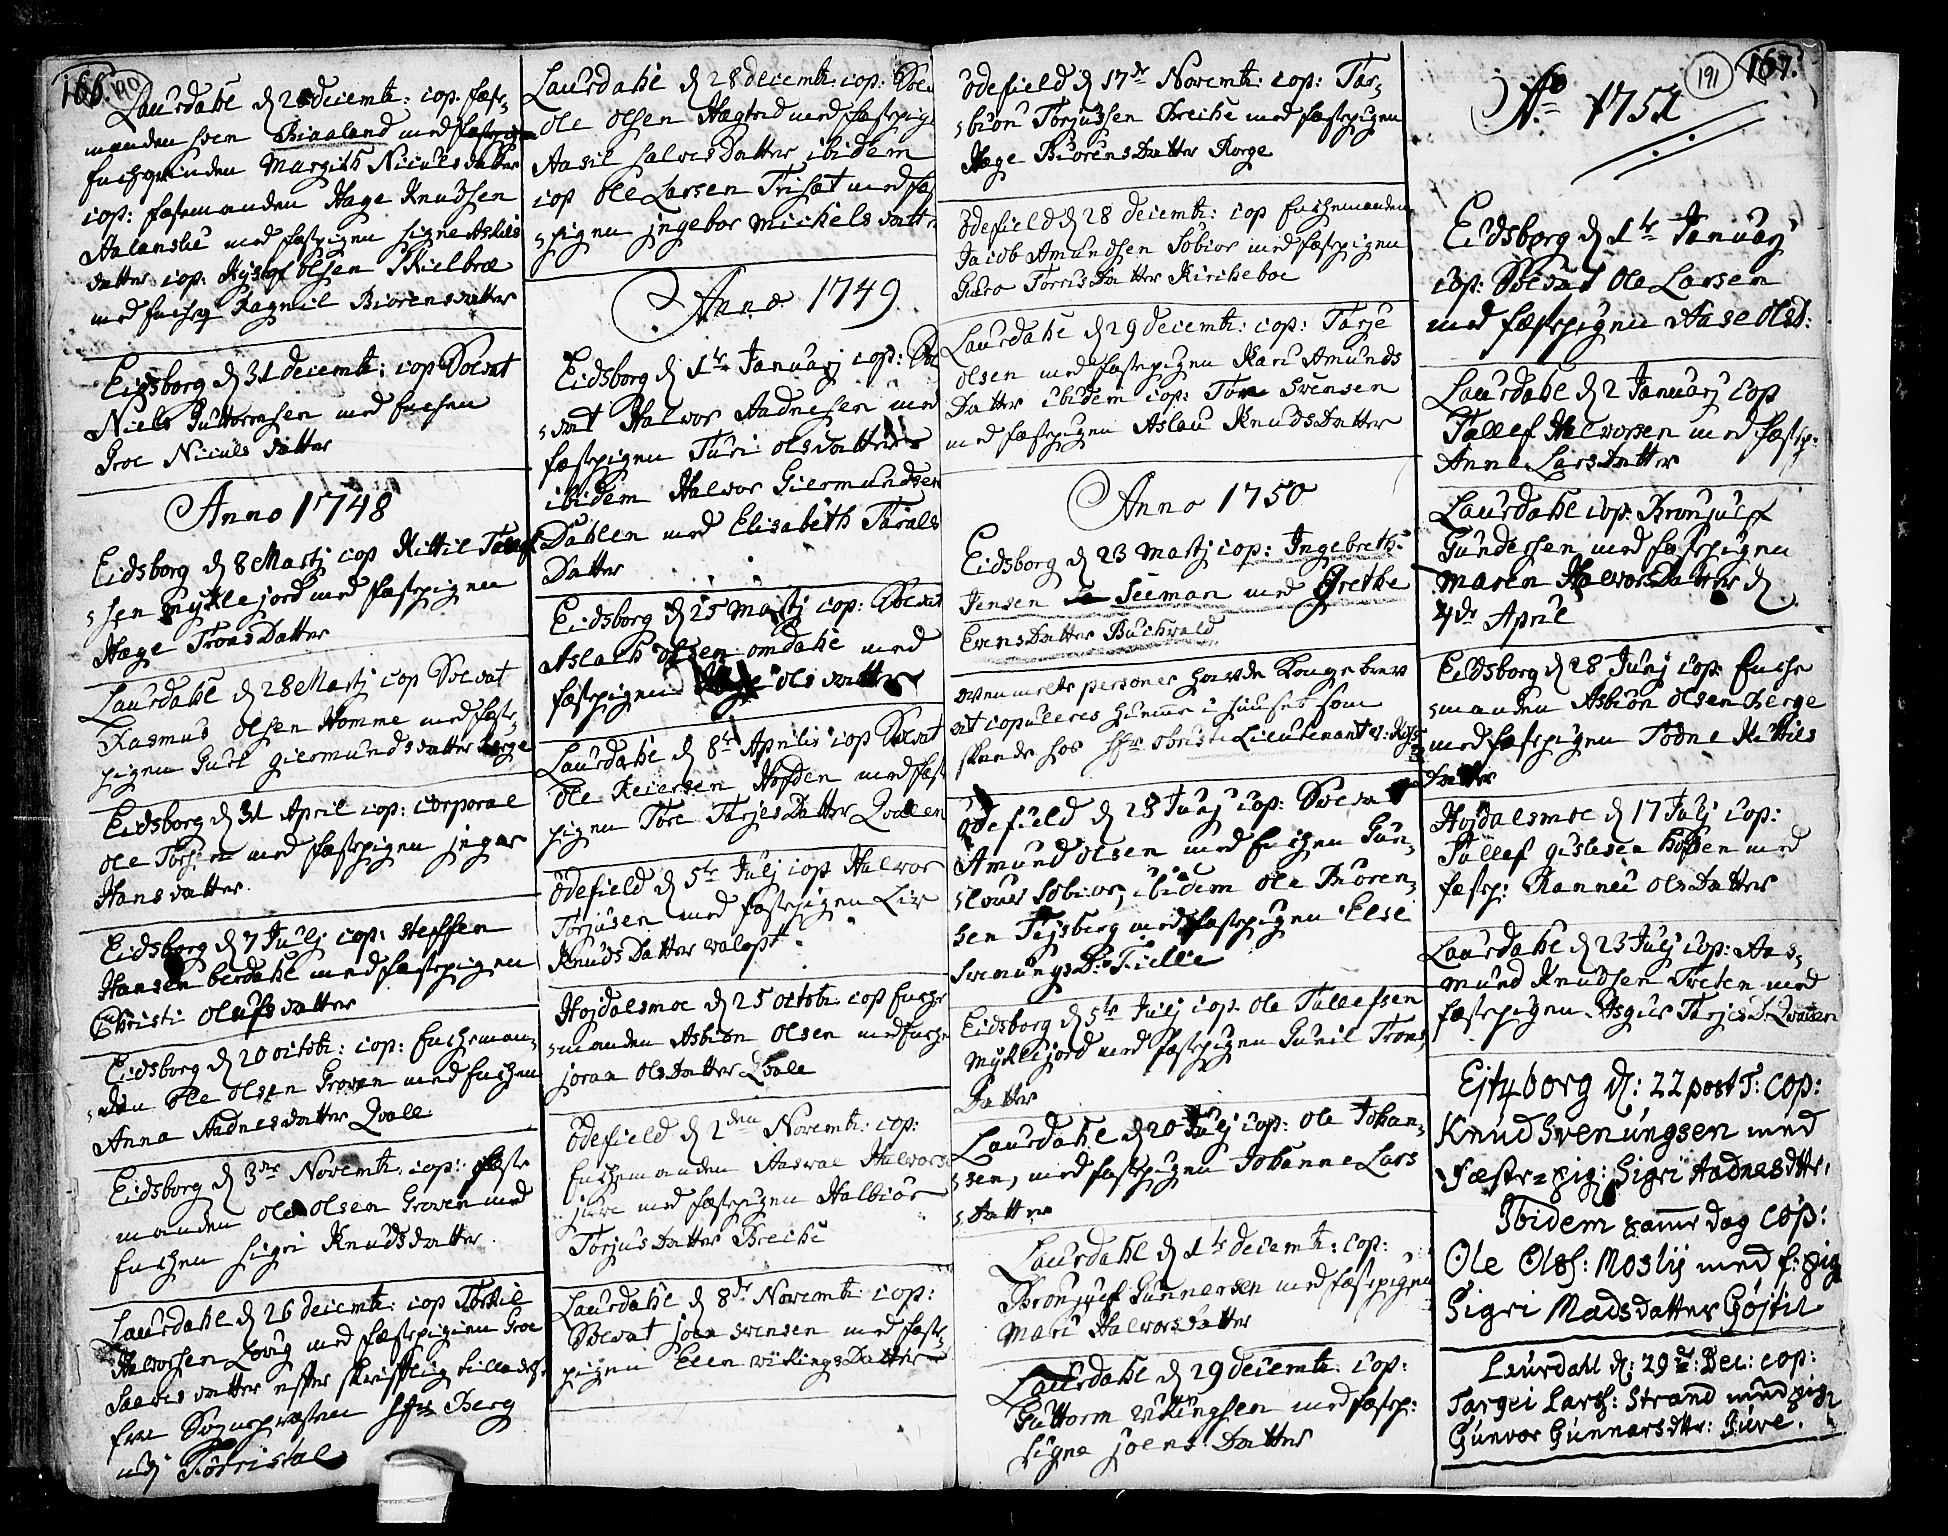 166.
190
Laurdahl d 28 decembr: cop: fæste-
manden Sven Biaaland med fæstepigen
Enchequinden Margith Niculsdatter
cop: fæstemanden Aage Knudsen
Aalanslie med fæstepigen Signe Aslefs
datter cop: Kystof olsen Skielbræ
med Enchep Ragnil Biorensdatter
Eidsborg d 31 decembr: cop Soldat
Niels Guttormsen med Enchen
Groe Niculs datter
Anno 1748
Eidsborg d 8 Martj cop Kittil Tallef
sen Myklejord med fæstepigen
Hæge Tronsdatter
Laurdahl d 28 Martj cop Soldat
Rasmus olsen Homme med fæste-
pigen Guri giermundsdatter berge
Eidsborg d 31 April cop: Corporal
ole Torsen med fæstepigen jngar
Hansdatter.
Eidsborg d 7 Julj cop: steffen
Hansen berdahl med fæstepigen
Christi olufsdatter
Eidsborg d 20 octobr: cop: Encheman-
den ole olsen Groven med Enchen
Anna Aadnesdatter Qvale
Eidsborg d 3de Novembr: cop: fæste
manden ole olsen Groven med
Enchen Sigri Knudsdatter.
Laurdahl d 26 decembr: cop Torkil
Halvorsen Lovig med fæstepigen Groe
Salvesdatter efter skriftlig tilladelse
fra Sognepræsten Hr Berg
udj Torrisdal
Laurdahl d 28 decembr: cop: Sol
ole olsen Hægtved med fæstepige
Aasil Halvorsdatter ibidem
cop ole Larsen Trisæt med fæs
pigen jngebor Michelsdatter
Anno 1749
Eidsborg d 1te Januarj cop: Sol
dat Halvor Aadnesen med
fæstepigen Turi olsdatter
ibidem Halvor Giermundsen
Dahlen med Elisabeth Tarals
Datter
Eidsborg d 25 Martj cop: Soldat
Aslach olsen omdahl med
fæstepigen Aage olsdatter
Laurdahl d 8te Aprilis cop Soldat
ole Reiersen Hofden med fæst
pigen Tore Tarjesdatter Qvalen
ødefield d 5te Julj cop Halvor
Torjusen med fæstepigen Liv
Knudsdatter valøst
Højdalsmoe d 25 octobr: cop Enche
manden Asbiøn olsen med Enche
joran olsdatter Qvale
ødefield d 2den Novembr: cop:
Enchemanden Aasval Halvorsen
juve med fæstepigen Halbiør
Torjusdatter Breche
Laurdahl d 8de Novembr cop:
Soldat joen svensen med fæste-
pigen Elen vikingsdatter
ødefield d 17de Novembr: cop: Tar-
biøn Torjussen Breche med fæstepigen
Hæge Biorensdatter Korge
ødefield d 28 decembr: cop Enchemanden
Jacob Amundsen Løbior med fæstepigen
Guro Torrisdatter Kircheboe
Laurdahl d 29 decembr: cop: Tarje
olsen med fæstepigen Kari Amunds
Datter ibidem cop: Tor Svensen
med fæstepigen Aslau Knudsdatter
Anno 1750
Eidsborg d 23 Martj cop: Ingebreth
Jensen Seeman med Grethe
Evensdatter Buchvald
ovenmelte personer havde Kongebrev
at copuleres hiemme i huuset som
skeede hos Hr obriste Lieutenant v: Kyss
ødefield d 23 Junj cop: Soldat
Amund olsen med Enchen Gun-
lour Løbior, ibidem ole Thoren-
sen Tejsberg med fæstepigen Else
SvenungsD: Fielle
Eidsborg d 5te Julj cop. ole Tallefsen
Myklejord med fæstepigen Gunil Trons
Datter
Laurdahl d 20 Julj cop: ole Johan-
sen, med fæstepigen Johanne Lars
Datter
Laurdahl d 1te decembr: cop:
Bronjulf Gunnersen med fæstepigen
Mari Halvorsdatter
Laurdahl d 29 decembr: cop:
Guttorm vikingsen med fæstep:
Signe joens Datter
191
167.
Ao 1751
Eidsborg d 1te Januarj
cop: Soldat Ole Larsen
med fæstepigen Aase Olsd:
Laurdahl d 2 Januarj cop
Tallef Halvorsen med fæstep:
Anne Larsdatter
Laurdahl cop: Bronjulf
Gundersen med fæstepigen
Maren Halvorsdatter d
4de April
Eidsborg d 28 Junj cop: Enche
manden Asbiøn olsen Berge
med fæstepigen Todne Kittils
Datter
Højdalsmoe d 17 Julj cop:
Tallef gislesen Hofden med
fæstep: Rannei olsdatter
Laurdahl d 23 Julj cop: Aas-
mund Knudsen Treten med
fæstepigen Asgier TarjesD: Qvalsen
Ejtzborg d: 22 post T: cop:
Knud Svenungsen med
Fæste-pig: Sigri Aadnesdttr.
Ibidem samme dag cop:
Ole Ols: Moslij med f: pig
Sigri Madsdatter Gøjtil
Laurdahl d: 29de: Dec: cop:
Targei Lars: Strand med pig:
Gunvor Gunnarsdttr: Juve.